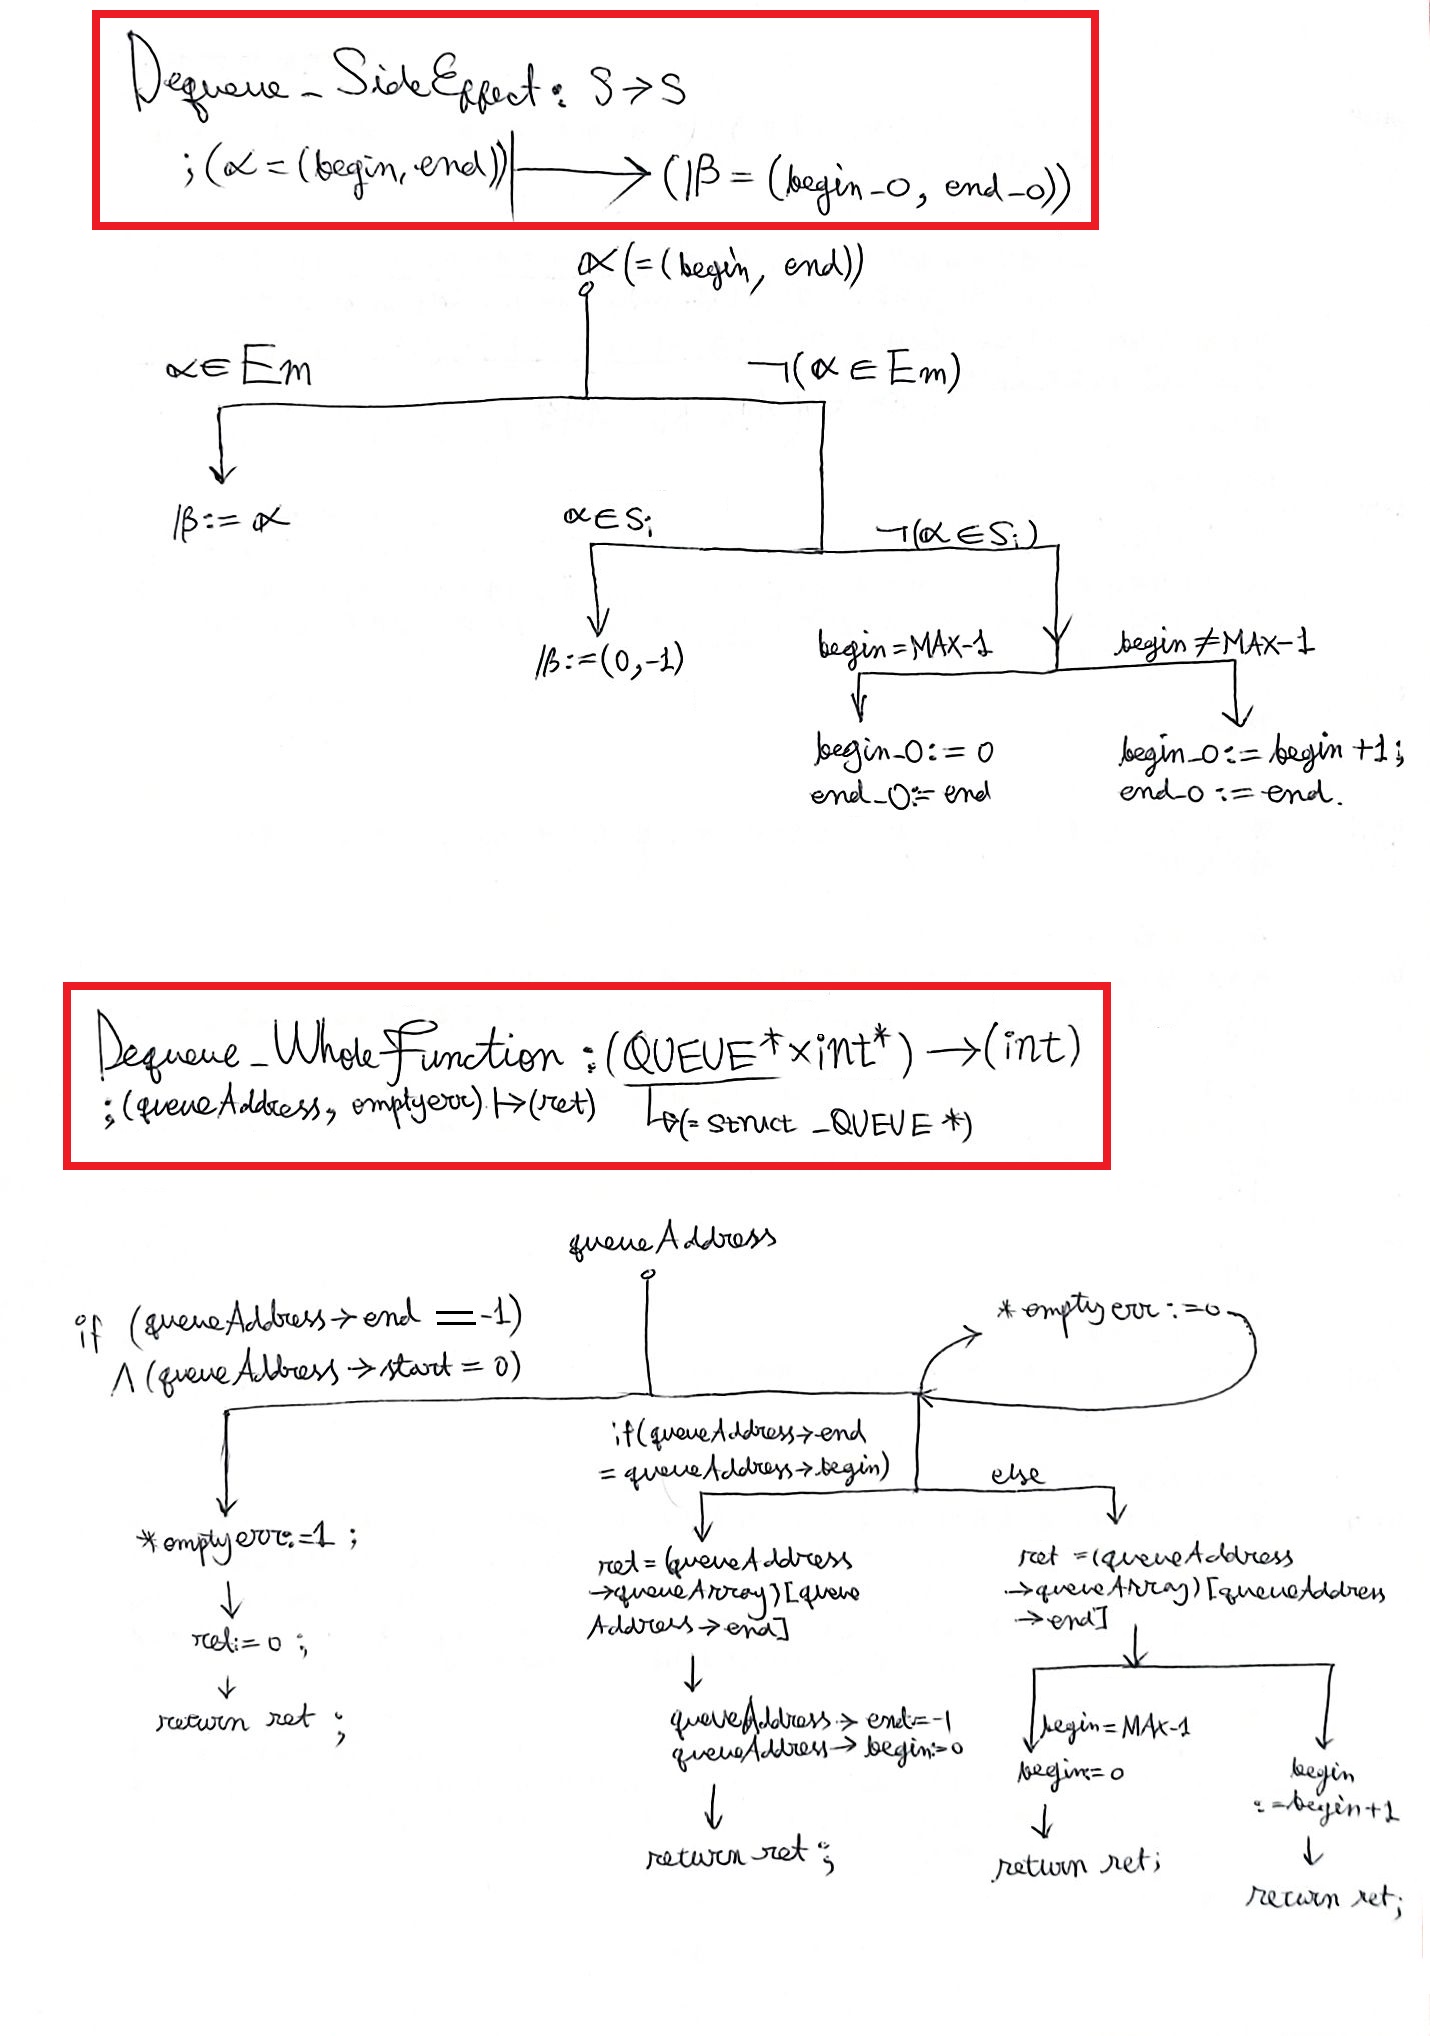 Dequeue_SideEffect: S→S
;(α=(begin, end))|⟶(β=(begin_0, end_0))
α(=(begin, end))
α∈Em
¬(α∈Em)
β:=α
α∈Si
¬(α∈Si)
β:=(0,-1)
begin=MAX-1
begin≠MAX-1
begin_0:=0
end_0:=end
begin_0:=begin+1;
end_0:=end.
Dequeue_WholeFunction:(QUEUE*×int*)→(int)
;(queueAddress, emptyerr)↦(ret)
(=struct _QUEUE*)
queueAddress
if (queueAddress→end ==-1)
∧(queueAddress→start=0)
*emptyerr:=0
if(queueAddress→end
=queueAddress→begin)
else
*emptyerr:=1;
ret:=0;
return ret;
ret=(queueAddress
→queueArray)[queue
Address→end]
queueAddress→end:=-1
queueAddress→begin:=0
return ret;
ret=(queueAddress
→queueArray)[queueAddress
→end]
begin=MAX-1
begin:=0
return ret;
begin
:=begin+1
return ret;